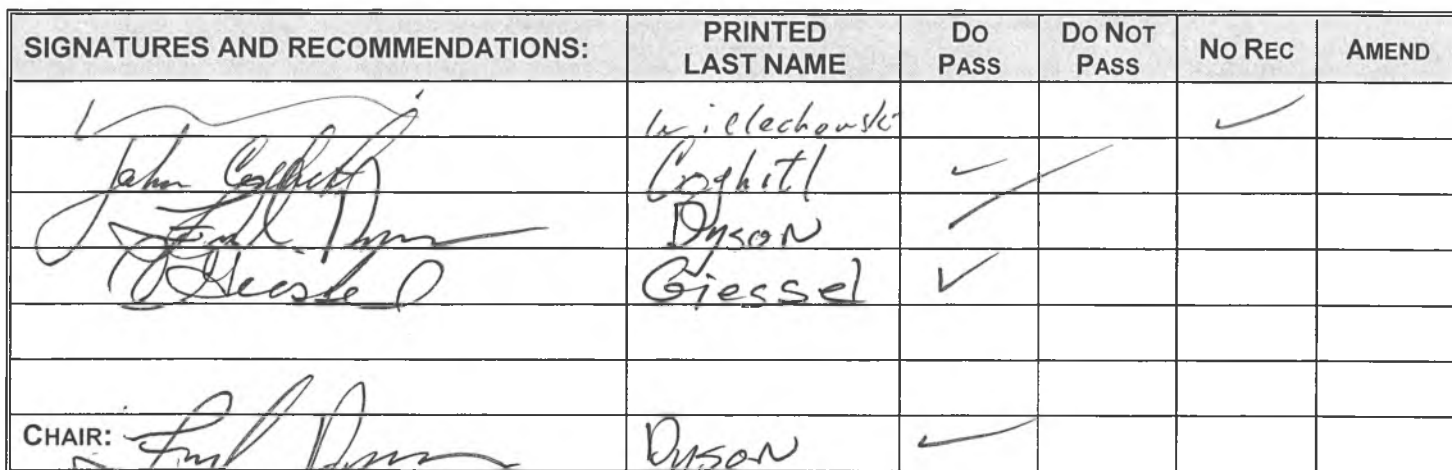 SIGNATURES AND RECOMMENDATIONS: PRINTED LAST NAME DO PASS DO NOT PASS NO REC AMEND
Wielechowski ✓
John Coghill Coghill ✓
Fred Dyson Dyson ✓
Giessel Giessel ✓
CHAIR: Fred Dyson Dyson ✓